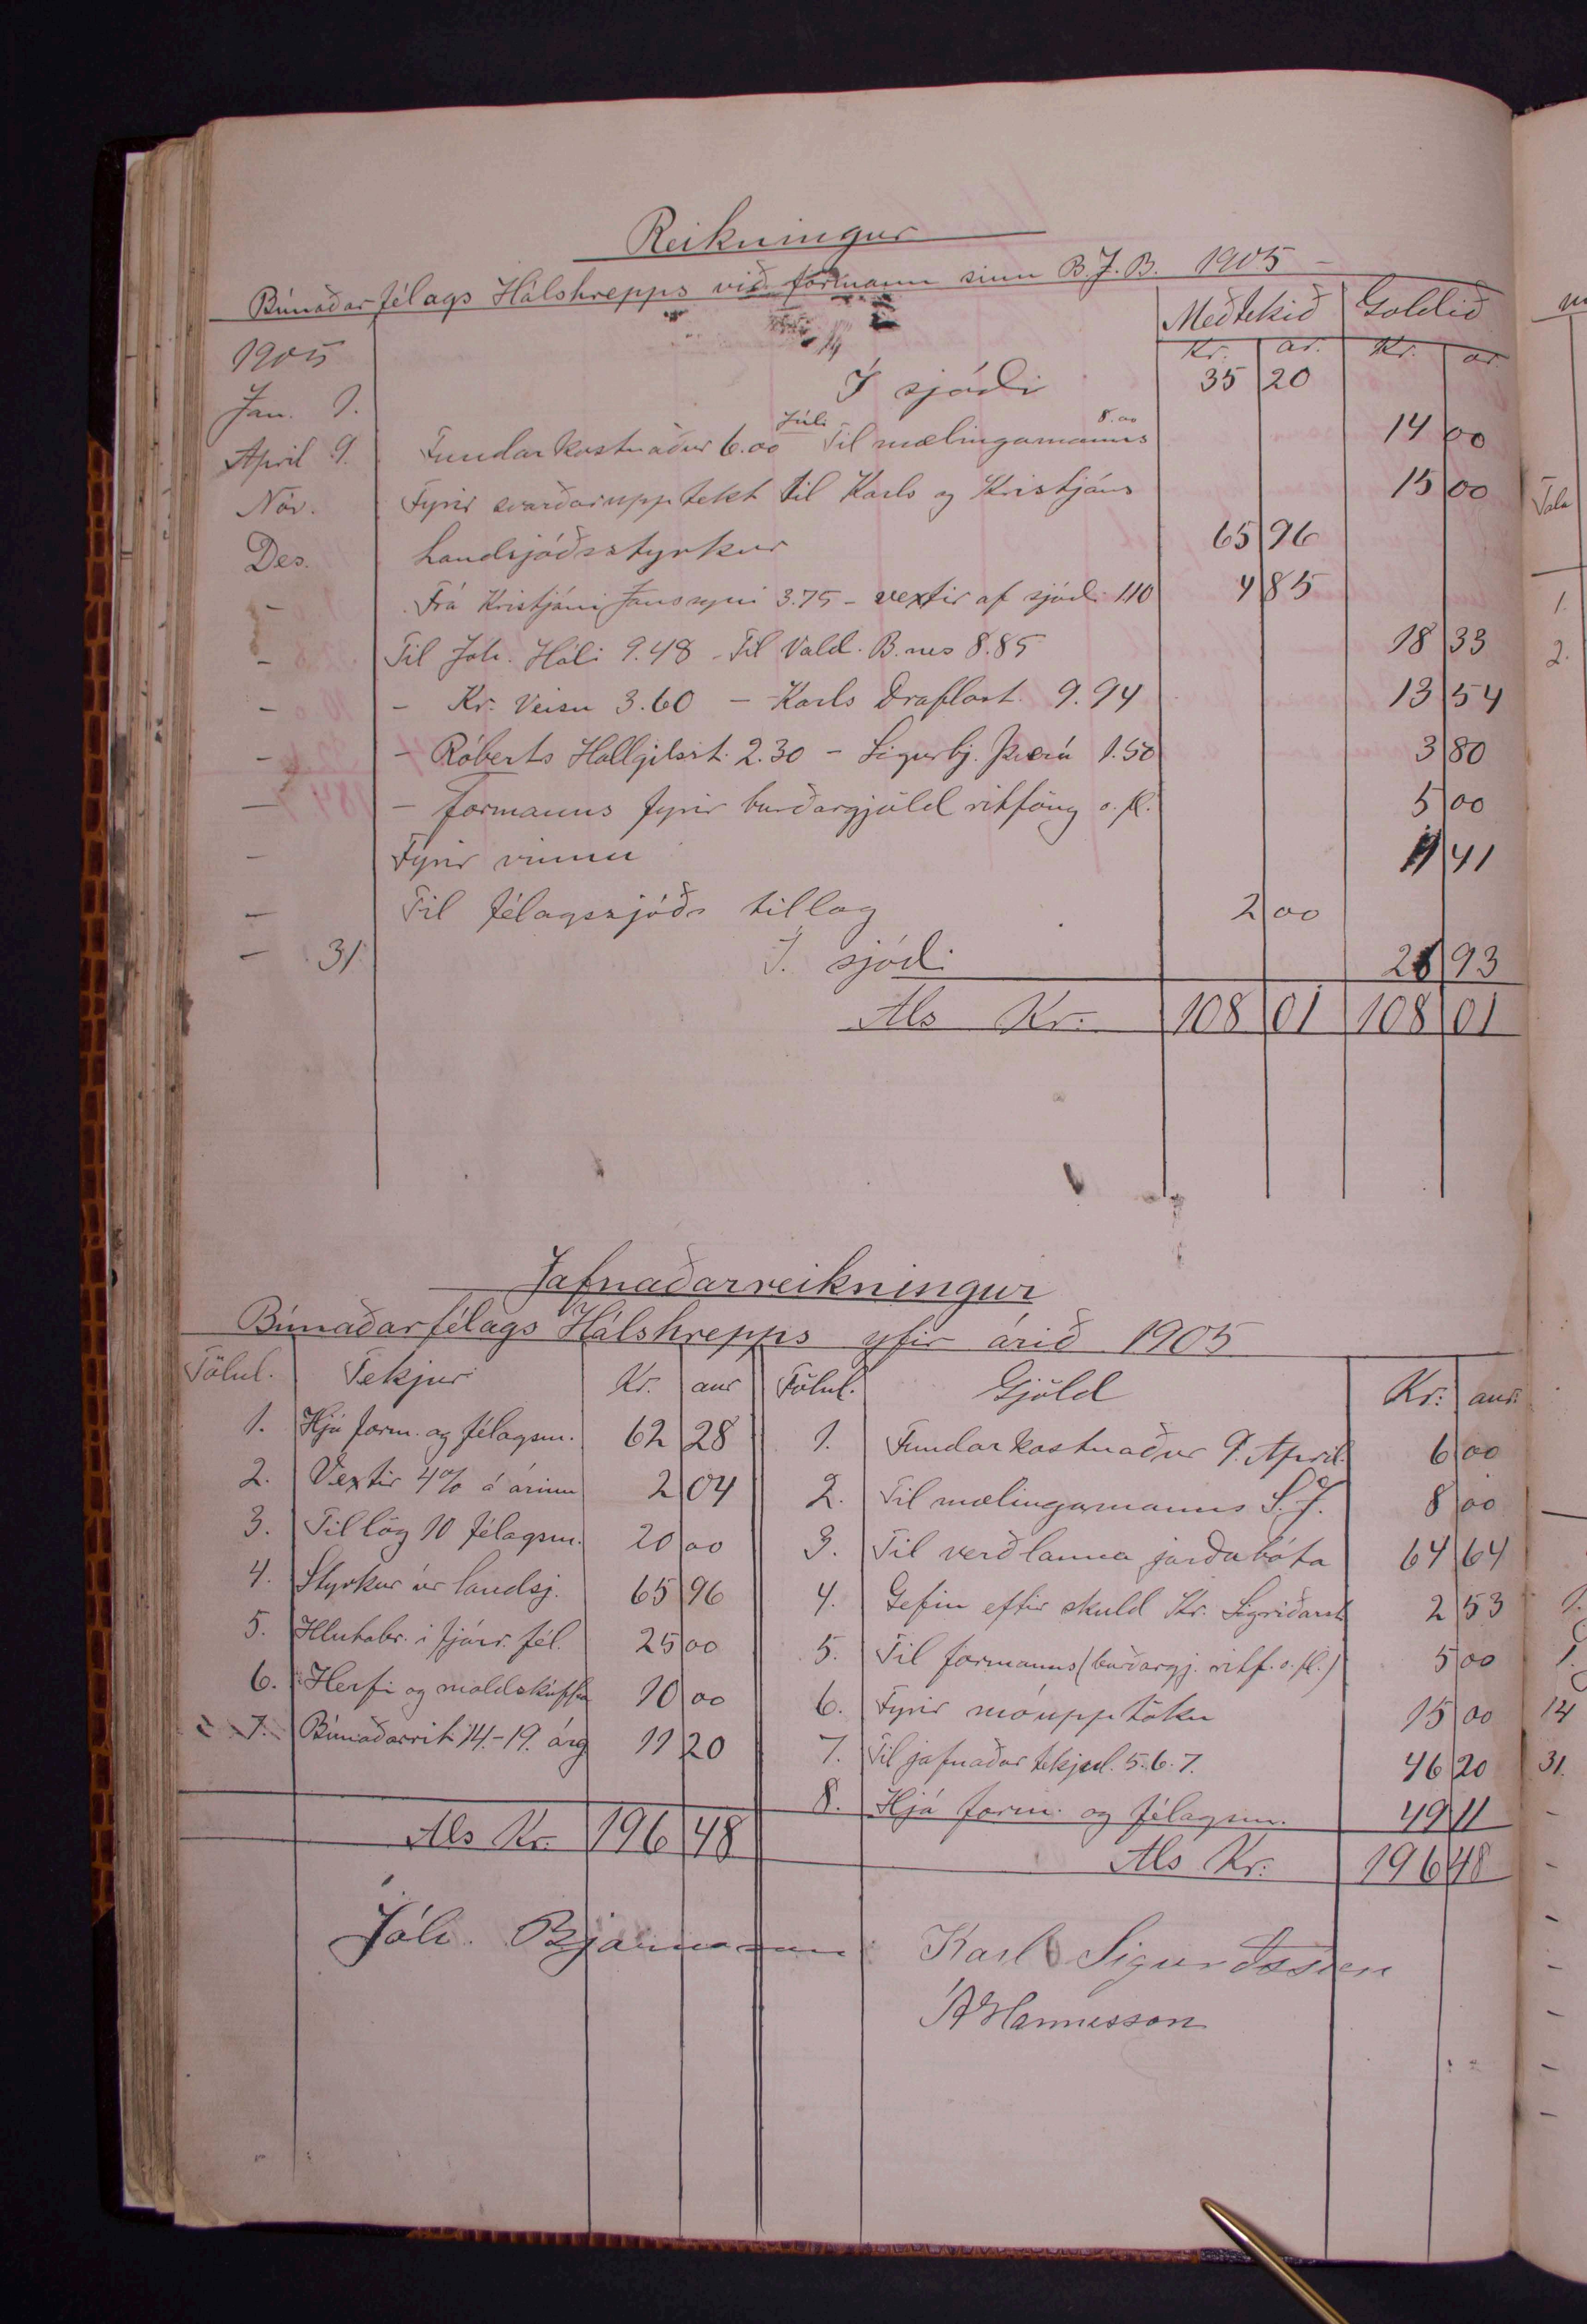 Reikningur
Búnaðarfélags Hálshrepps við formann sinn B.J.B. 1905 -
Meðtekið Goldið
1905 Kr. ar. Kr. ar
Jan. 1. Í sjóði 35 20
April 9. Fundarkostnaður 6.00 Júlí Til mælingamanns 8.00 14 00
Nóv. Fyrir svarðarupptekt til Karls og Kristjáns 15 00
Des. Landsjóðsstyrkur 65 96
- Frá Kristjáni Jónssyni 3.75 - vextir af sjóði 1.10 4 85
- Til Jóh. Háli 9.48 - Til Vald. B.nes 8.85 18 33
- - Kr. Veisu 3.60 - Karls Draflast. 9.94 13 54
- - Róberts Hallgilsst. 2.30 - Sigurbj. Þverá 1.50 3 80
- - formanns fyrir burðargjöld ritföng o.fl. 5 00
- Fyrir vinnu 11 41
- Til félagssjóðs tillag 2 00
- 31 Í sjóði 26 93
Als Kr. 108 01 108 01
Jafnaðarreikningur
Búnaðarfélags Hálshrepps yfir árið 1905
Tölul. Tekjur Kr. aur Tölul. Gjöld Kr: aur:
1. Hjá form. og félagsm. 62 28 1. Fundarkostnaður 9. April. 6 00
2. Vextir 4% á árinu 2 04 2. Til mælingamanns S.J. 8 00
3. Tillög 10 félagsm. 20 00 3. Til verðlauna jarðabóta 64 64
4. Styrkur úr landsj. 65 96 4. Gefin eftir skuld Kr. Sigríðarst 2 53
5. Hlutabr. í fjárr. fél. 25 00 5. Til formanns (burðargj. ritf. o.fl.) 5 00
6. Herfi og moldskúffa 10 00 6. Fyrir móupptöku 15 00
7. Búnaðarrit 14.-19. árg 11 20 7. Til jafnaðar tekjul. 5.6.7. 46 20
8. Hjá form. og félagsm. 49 11
Als Kr. 196 48 Als Kr: 196 48
Jóh. Bjarnason Karl Sigurðsson
Á Hannesson